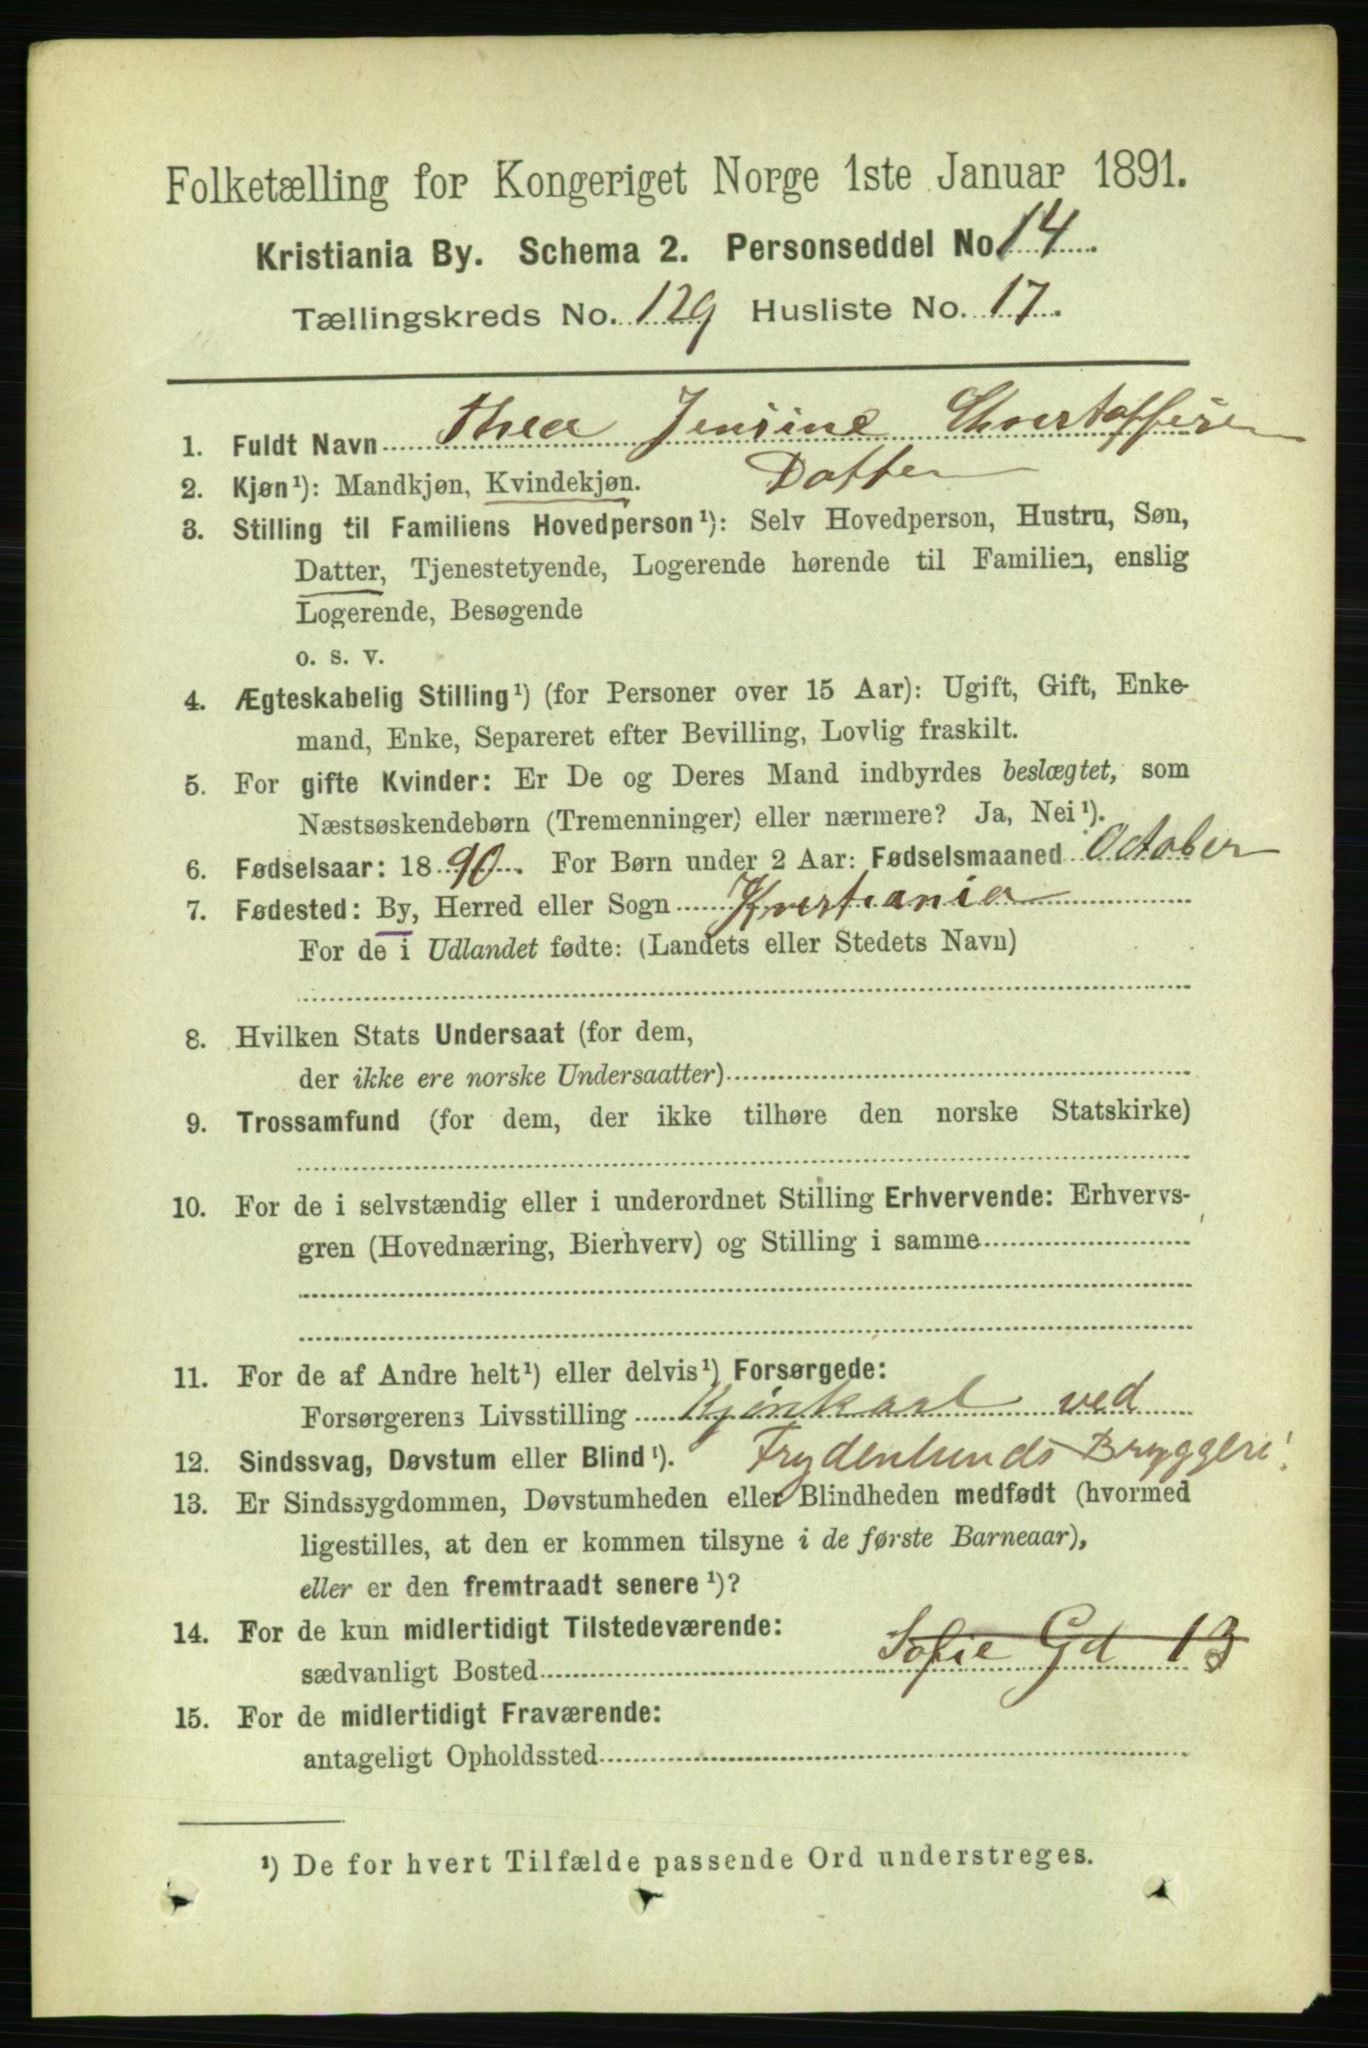 Folketælling for Kongeriget Norge 1ste Januar 1891.
Kristiania By. Schema 2. Personseddel No. 14.
Tællingskreds No. 129 Husliste No. 17.
1. Fuldt Navn Thea Jensine Christoffersen
2. Kjøn¹): Mandkjøn, Kvindekjøn. Datter
3. Stilling til Familiens Hovedperson¹): Selv Hovedperson, Hustru, Søn,
Datter, Tjenestetyende, Logerende hørende til Familien, enslig
Logerende, Besøgende
o. s. v.
4. Ægteskabelig Stilling¹) (for Personer over 15 Aar): Ugift, Gift, Enke-
mand, Enke, Separeret efter Bevilling, Lovlig fraskilt.
5. For gifte Kvinder: Er De og Deres Mand indbyrdes beslægtet, som
Næstsøskendebørn (Tremenninger) eller nærmere? Ja, Nei¹).
6. Fødselsaar: 1890. For Børn under 2 Aar: Fødselsmaaned October
7. Fødested: By, Herred eller Sogn Kristiania
For de i Udlandet fødte: (Landets eller Stedets Navn)
8. Hvilken Stats Undersaat (for dem,
der ikke ere norske Undersaatter)
9. Trossamfund (for dem, der ikke tilhøre den norske Statskirke)
10. For de i selvstændig eller i underordnet Stilling Erhvervende: Erhvervs-
gren (Hovednæring, Bierhverv) og Stilling i samme
11. For de af Andre helt¹) eller delvis¹) Forsørgede:
Forsørgerens Livsstilling Kjørekarl ved
12. Sindssvag, Døvstum eller Blind¹). Frydenlunds Bryggeri!
13. Er Sindssygdommen, Døvstumheden eller Blindheden medfødt (hvormed
ligestilles, at den er kommen tilsyne i de første Barneaar),
eller er den fremtraadt senere¹)?
14. For de kun midlertidigt Tilstedeværende:
sædvanligt Bosted Sofie Gd 13
15. For de midlertidigt Fraværende:
antageligt Opholdssted
¹) De for hvert Tilfælde passende Ord understreges.